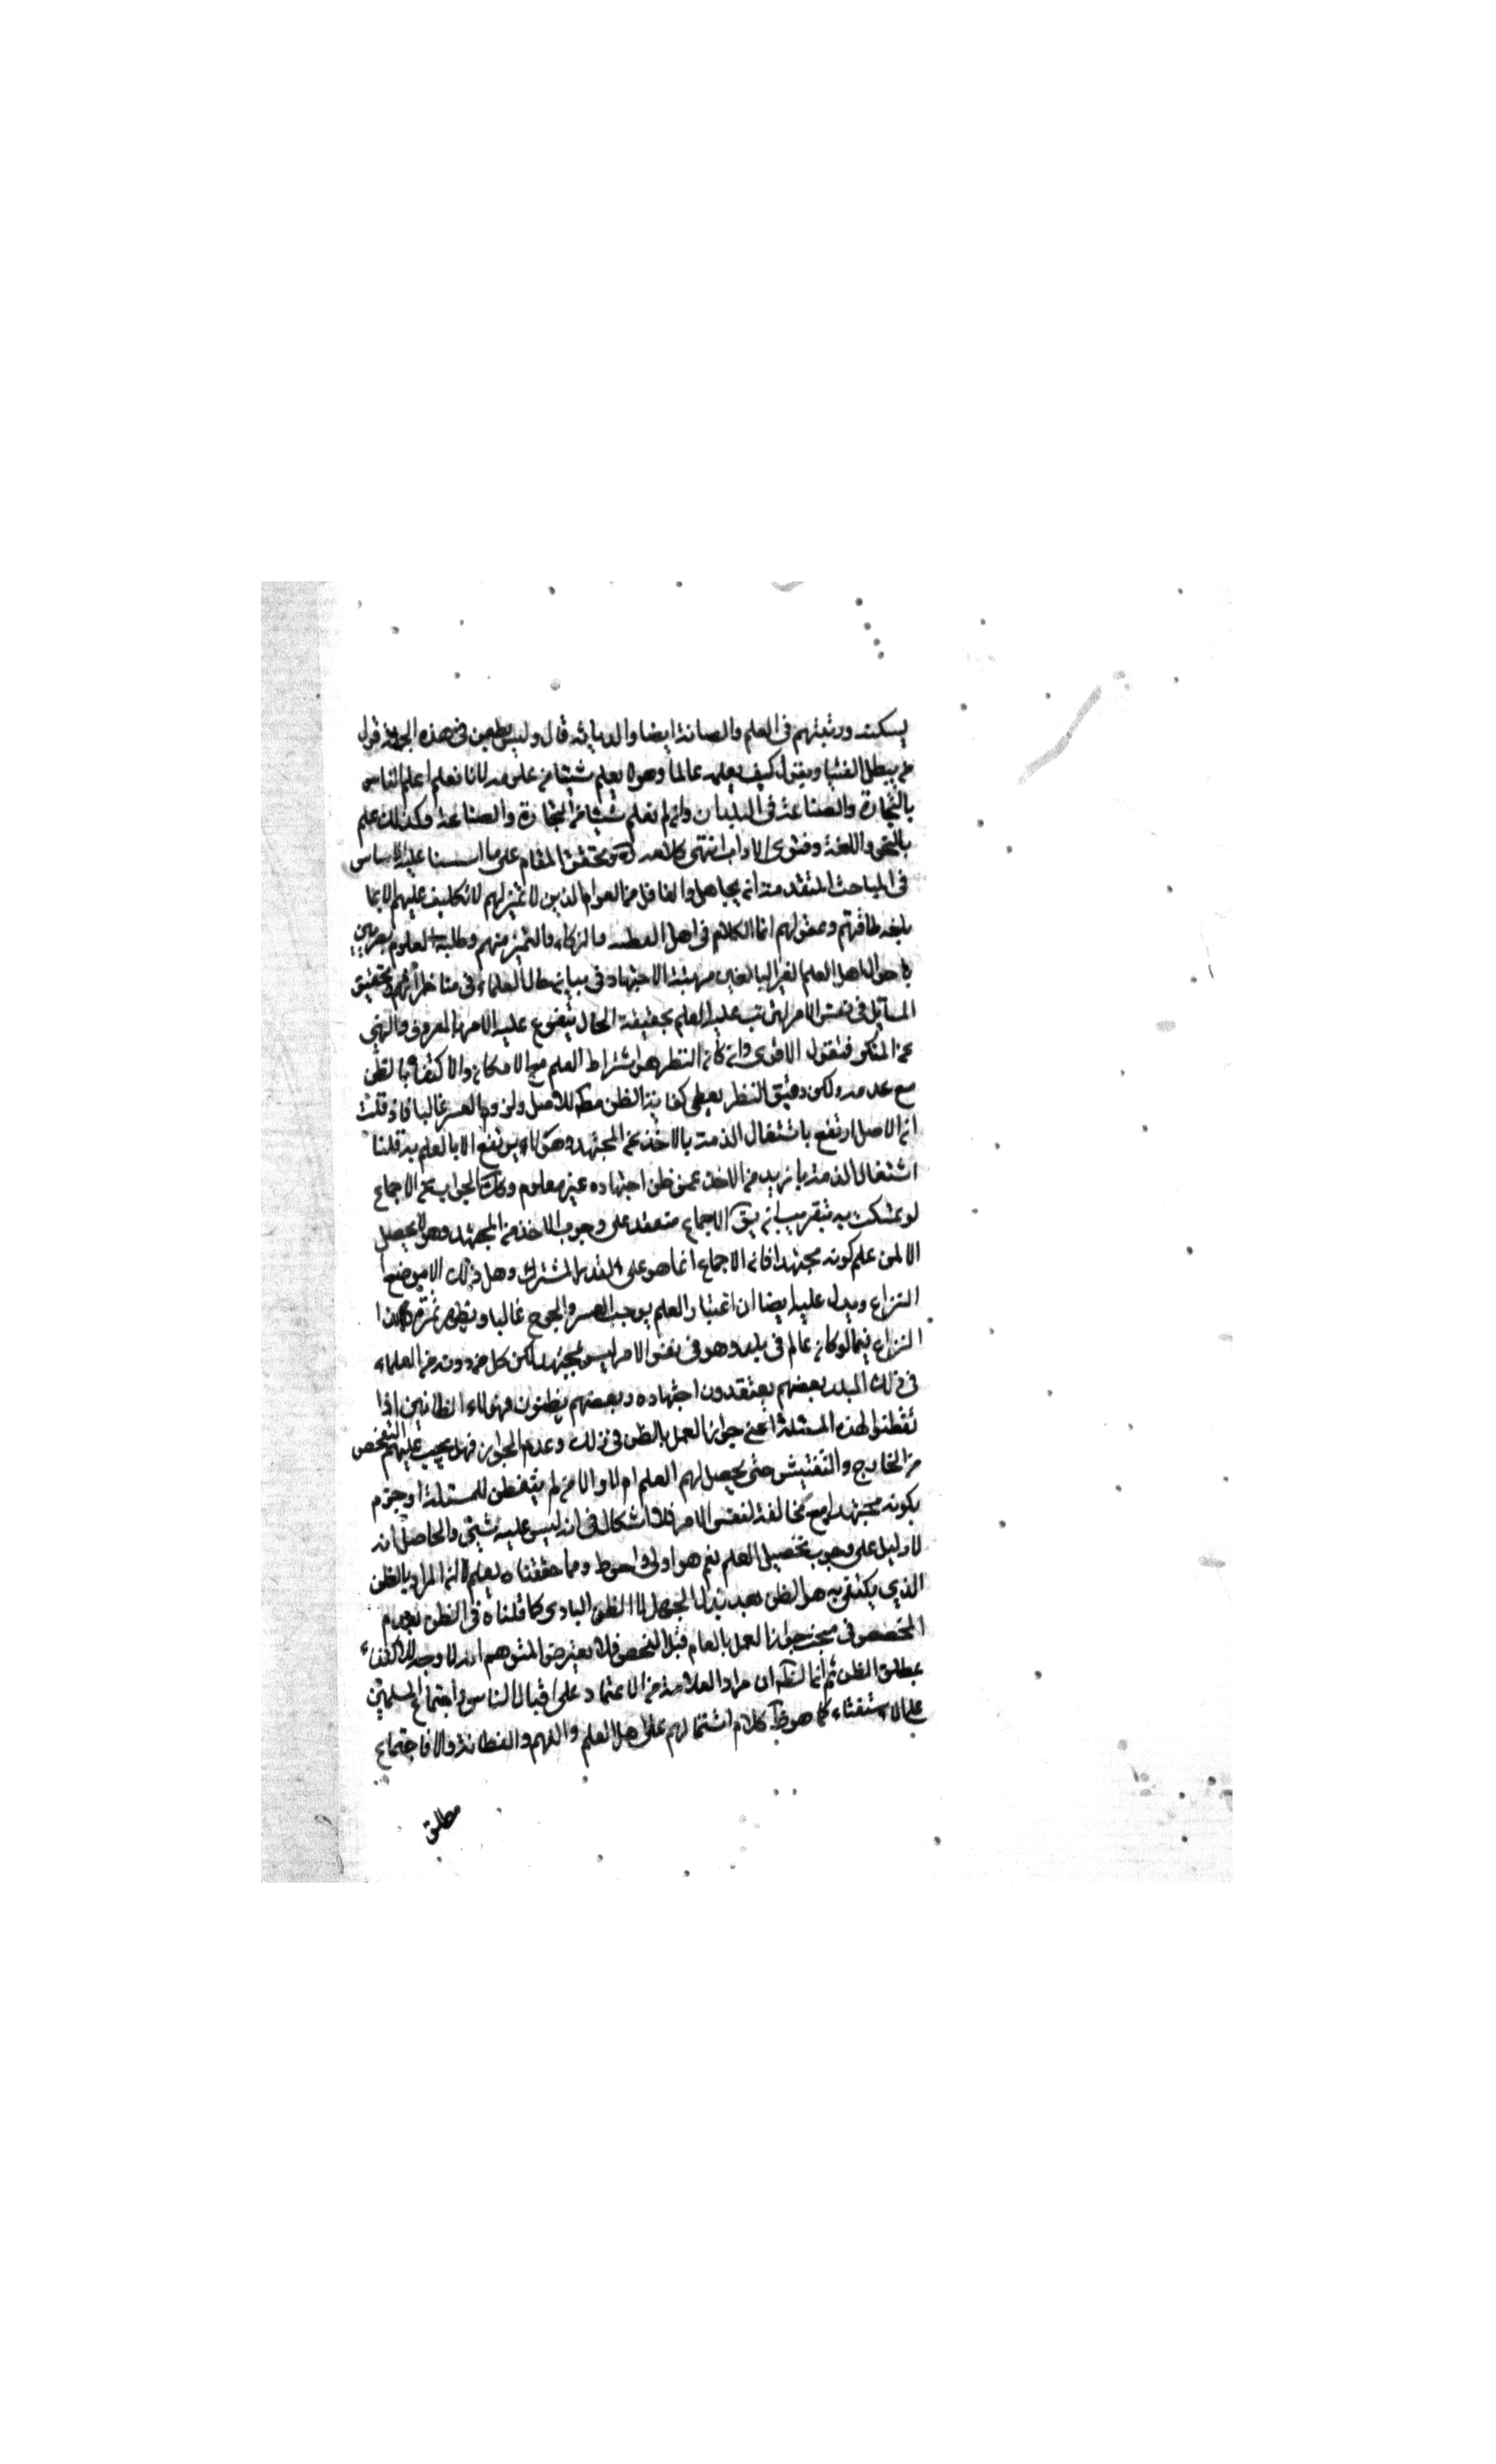 يسكنه ورتبتهم في العلم والصيانة ايضا والديانة قال وليس يطعن في هذه الجملة قول
من يبطل الفتيا ويقول كيف يعلمه عالما وهو لا يعلم شيئا من علومه لانا نعلم اعلم الناس
بالتجارة والصناعة في البلدان وان لم نعلم شيئا من التجارة والصناعة وكذلك علم
بالنحو واللغة وفنون الاداب انتهى كلامه ره وتحقيق المقام على ما اسسنا عليه الاساس
في المباحث المتقدمة ان الجاهل والغافل من العوام الذين لا تميز لهم لا تكليف عليهم الا بما
بلغه طاقتهم وعقولهم انما الكلام في اهل الفطنه والزكاء والتميز منهم وطلبة العلوم
با حوال اهل العلم الغير البالغين مرتبة الاجتهاد وفي بيان حال العلماء في مناظراتهم وتحقيق
المسائل في نفس الامر ليترتب عليه العلم بحقيقة الحال يتفرع عليه الامر بالمعروف والنهي
عن المنكر فنقول الاقوى وان كان النظر هو اشتراط العلم مع الامكان والاكتفاء بالظن
مع عدمه ولكن دقيق النظر يعطى كفاية الظن مط للاصل ولزوم العسر غالبا فان قلت
ان الاصل ارتفع باشتغال الذمة بالاخذ عن المجتهد وهو لا يرتفع الا بالعلم به قلنا
اشتغال الذمة بازيد من الاخذ عمن ظن اجتهاده غير معلوم وكك الجواب عن الاجماع
لو تمسكت به بتقريب ان يق الاجماع منعقد على وجوب الاخذ من المجتهد وهو لا يحصل
الا لمن علم كونه مجتهدا فان الاجماع انما هو على القدر المشترك وهل ذلك الا موضع
النزاع ويدل عليه ايضا ان اعتبار العلم يوجب العسر والحرج غالبا ويظهر ثمرة هذا
النزاع فيما لو كان عالم في بلد وهو في نفس الامر ليس بمجتهد لكن كل من دونه من العلماء
في ذلك البلد بعضهم يعتقدون اجتهاده وبعضهم يظنون فهؤلاء الظانين اذا
تفطنوا لهذه المسئلة اعني جواز العمل بالظن في ذلك وعدم الجواز فهل يجب عليهم التفحص
من الخارج والتفتيش حتى يحصل لهم العلم ام لا والا فمن لم يتفطن للمسئلة او جزم
بكونه مجتهدا مع مخالفة لنفس الامر فلا اشكال في انه ليس عليه شيئ والحاصل انه
لا دليل على وجوب تحصيل العلم نعم هو اولى واحوط ومما حققناه يعلم ان المراد بالظن
الذي يكتفى به هو الظن بعد بذل الجهد لا الظن البادى كما قلناه في الظن بعدم
المخصص في مبحث جواز العمل بالعام قبل الفحص فلا يعترض المتوهم انه لا وجه للاكتفاء
بمطلق الظن ثم انما الظ ان مراد العلامة من الاعتماد على اقبال الناس واجتماع المسلمين
على الاستفتاء كما هو ظ كلام اشتمالهم على اهل العلم والفهم والفطانة والا فاجتماع
مطلق